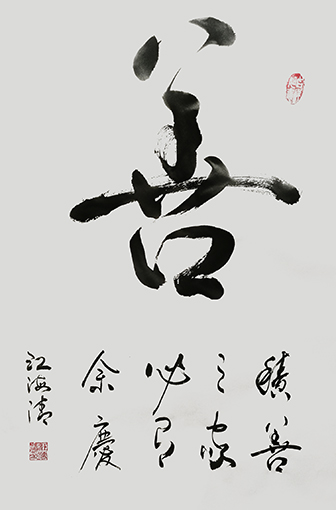 善
積善
之家
必有
余慶
江海清